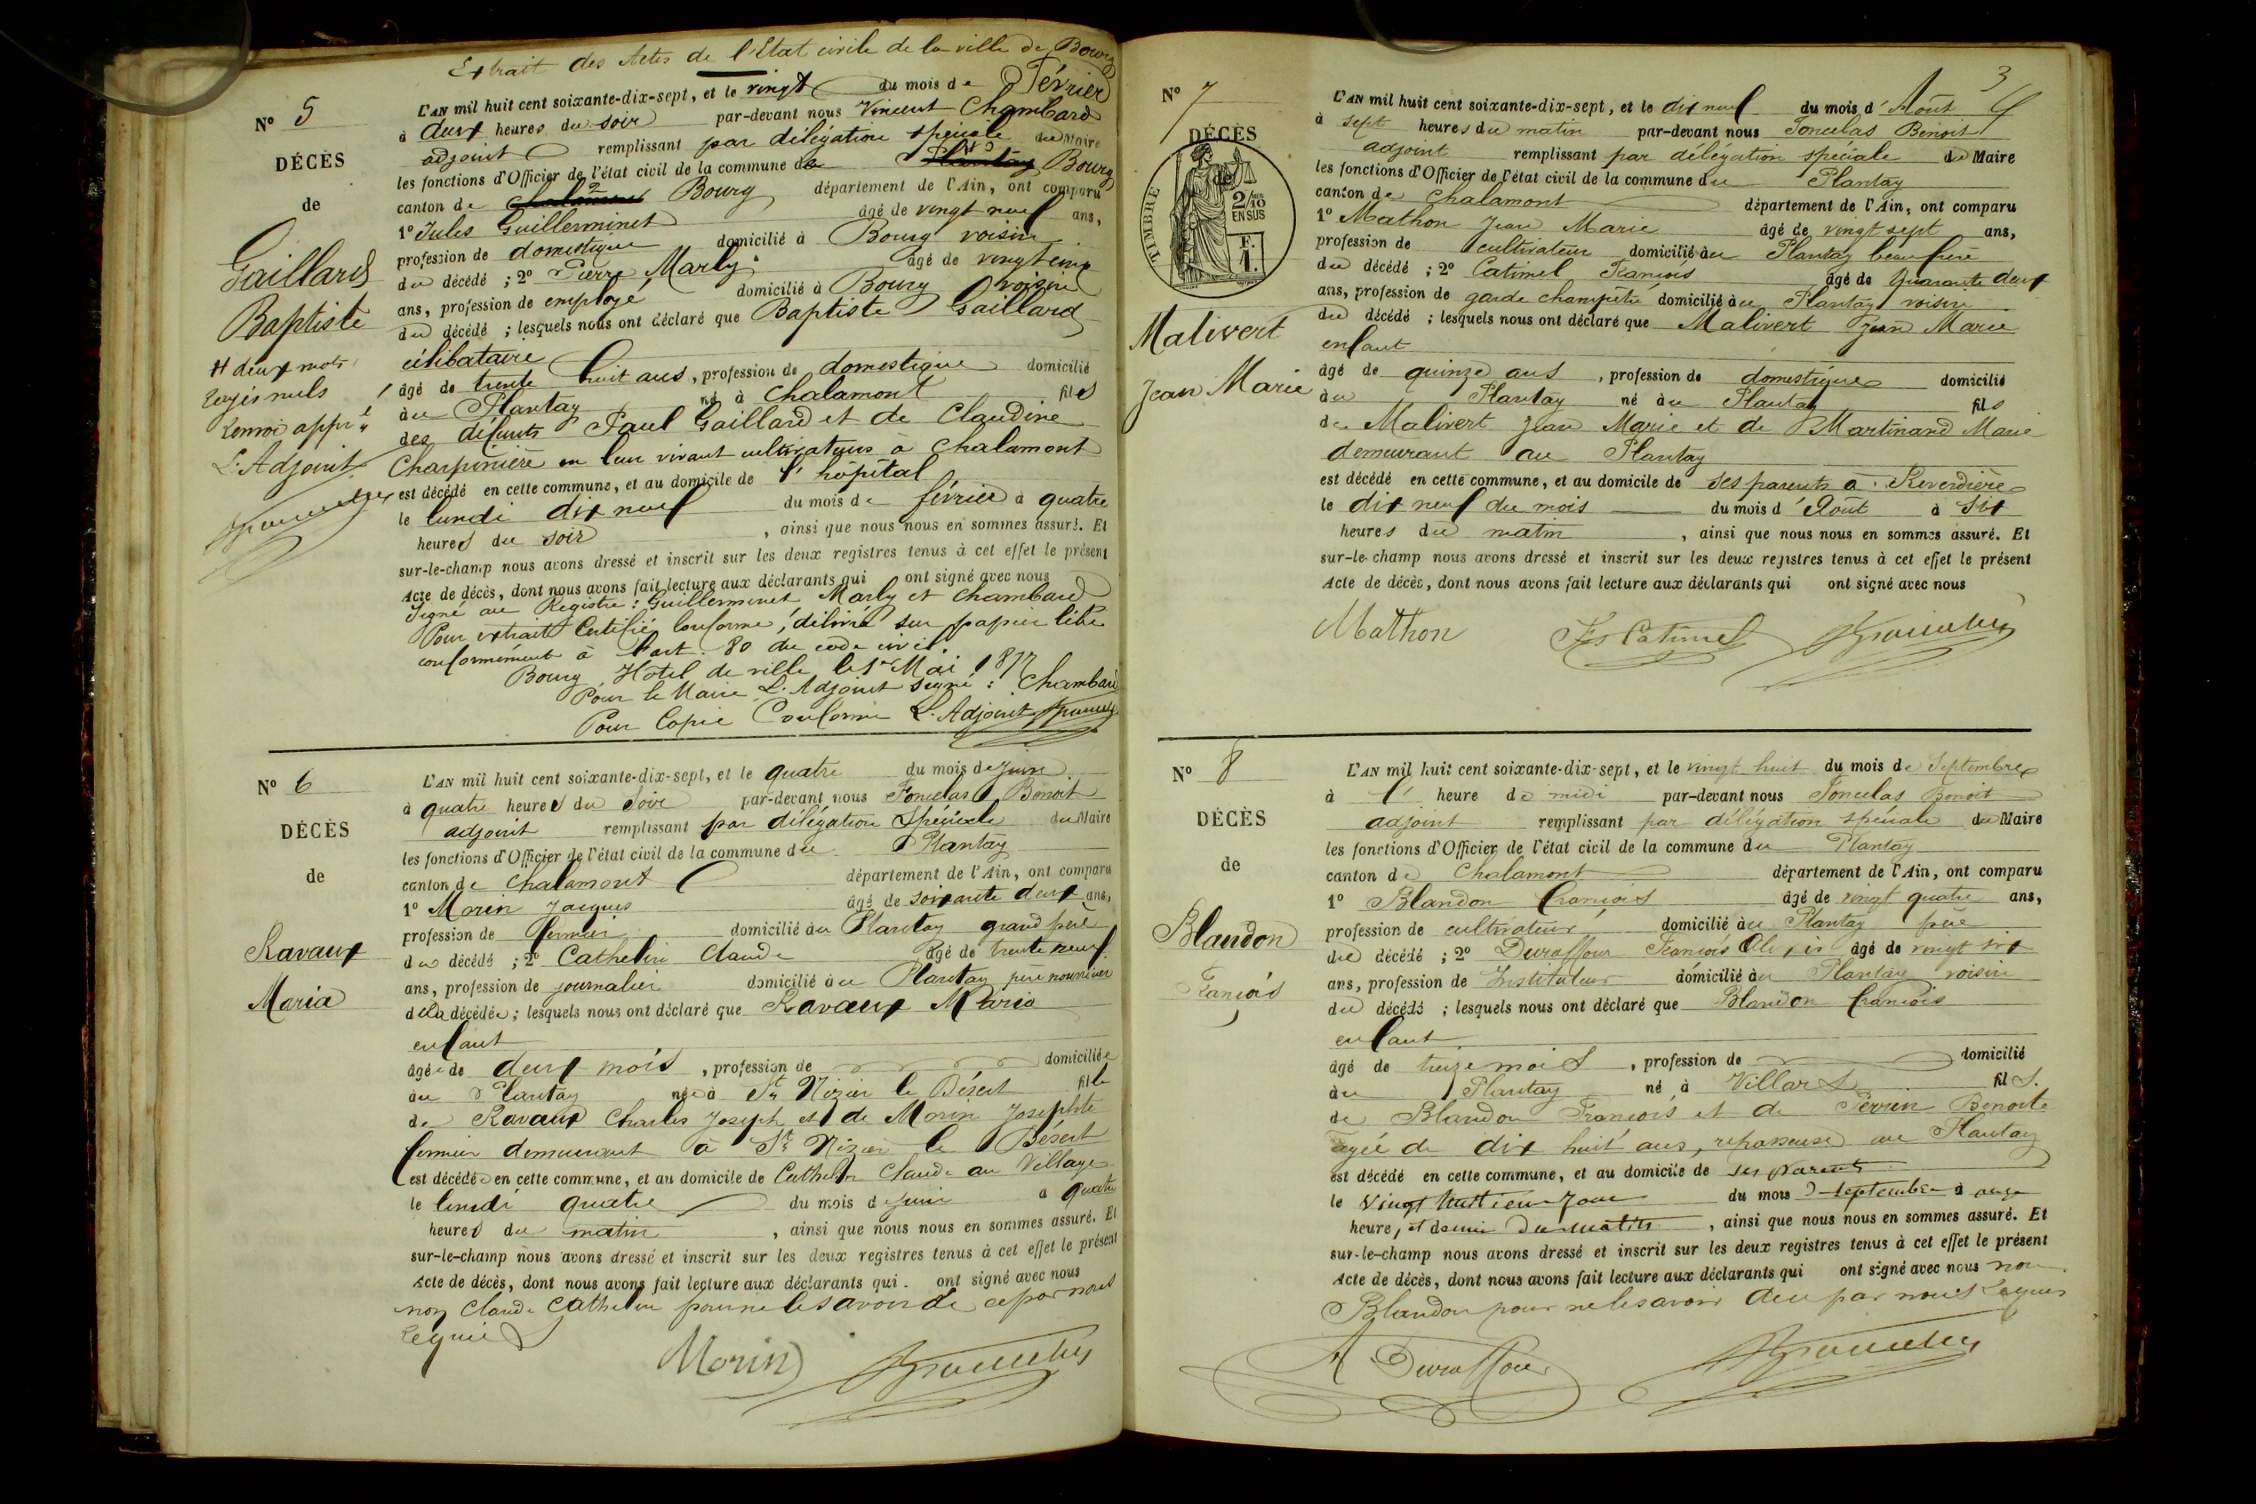 Extrait des Actes de l'Etat civile de la ville de Bourg
N° 5
DÉCÈS
de
Gaillard
Baptiste
H deux mots
rayés nuls
Renvoi appr.
L'Adjoint
L'AN mil huit cent soixante-dix-sept, et le vingt du mois de Février
à deux heures du soir par-devant nous Vincent Chambard
adjoint remplissant par délégation spéciale du Maire
les fonctions d'Officier de l'état civil de la commune de Plantay Bourg
canton de Chalamont Bourg département de l'Ain, ont comparu
1° Jules Guillerminet âgé de vingt neuf ans,
profession de domestique domicilié à Bourg voisin
du décédé ; 2° Pierre Marly âgé de vingt cinq
ans, profession de employé domicilié à Bourg voisin
du décédé ; lesquels nous ont déclaré que Baptiste Gaillard
célibataire
âgé de trente huit ans, profession de domestique domicilié
au Plantay né à Chalamont fils
des défunts Paul Gaillard et de Claudine
Charpinière en leur vivant cultivateurs à Chalamont
est décédé en cette commune, et au domicile de l'hôpital
le lundi dix neuf du mois de février à quatre
heures du soir, ainsi que nous nous en sommes assuré. Et
sur-le-champ nous avons dressé et inscrit sur les deux registres tenus à cet effet le présent
Acte de décès, dont nous avons fait lecture aux déclarants qui ont signé avec nous
Signé au Registre : Guillerminet Marly et Chambard
Pour extrait Certifié Conforme, délivré sur papier libre
conformément à l'art. 80 du code civil
Bourg, Hôtel de ville le 1er Mai 1877
Pour le Maire L'Adjoint signé : Chambard
Pour Copie Conforme L'Adjoint
N° 6
DÉCÈS
de
Ravaux
Maria
L'AN mil huit cent soixante-dix-sept, et le quatre du mois de juin
à quatre heures du Soir par-devant nous Foncelas Benoit
adjoint remplissant par délégation Spéciale du Maire
les fonctions d'Officier de l'état civil de la commune du Plantay
canton de Chalamont département de l'Ain, ont comparu
1° Morin Jacques âgé de soixante deux ans,
profession de fermier domicilié au Plantay grand père
du décédé ; 2° Cathelin Claude âgé de trente neuf
ans, profession de journalier domicilié au Plantay père nourricier
de la décédée ; lesquels nous ont déclaré que Ravaux Maria
enfant
âgée de deux mois, profession de domiciliée
au Plantay née à St Nizier le Désert fille
de Ravaux Charles Joseph et de Morin Josephte
fermier demeurant à St Nizier le Désert
est décédée en cette commune, et au domicile de Cathelin Claude au Village
le lundi quatre du mois de juin à quatre
heures du matin, ainsi que nous nous en sommes assuré. Et
sur-le-champ nous avons dressé et inscrit sur les deux registres tenus à cet effet le présent
Acte de décès, dont nous avons fait lecture aux déclarants qui ont signé avec nous
non Claude Cathelin pour ne le savoir de ce par nous
Requis
Morin
3
N° 7
DÉCÈS
de
TIMBRE
2/10
EN SUS
F.
1.
Malivert
Jean Marie
L'AN mil huit cent soixante-dix-sept, et le dix neuf du mois d'Août
à sept heures du matin par-devant nous Foncelas Benoit
adjoint remplissant par délégation spéciale du Maire
les fonctions d'Officier de l'état civil de la commune du Plantay
canton de Chalamont département de l'Ain, ont comparu
1° Mathon Jean Marie âgé de vingt sept ans,
profession de cultivateur domicilié au Plantay beau frère
du décédé ; 2° Catimel François âgé de Quarante deux
ans, profession de garde champêtre domicilié au Plantay voisin
du décédé ; lesquels nous ont déclaré que Malivert Jean Marie
enfant
âgé de quinze ans, profession de domestique domicilié
au Plantay né au Plantay fils
de Malivert Jean Marie et de Martinand Marie
demeurant au Plantay
est décédé en cette commune, et au domicile de ses parents à Reverdière
le dix neuf du mois du mois d'Août à Six
heures du matin, ainsi que nous nous en sommes assuré. Et
sur-le-champ nous avons dressé et inscrit sur les deux registres tenus à cet effet le présent
Acte de décès, dont nous avons fait lecture aux déclarants qui ont signé avec nous
Mathon Fs Catimel
N° 8
DÉCÈS
de
Blandon
François
L'AN mil huit cent soixante-dix-sept, et le vingt huit du mois de Septembre
à l' heure de midi par-devant nous Foncelas Benoit
adjoint remplissant par délégation spéciale du Maire
les fonctions d'Officier de l'état civil de la commune du Plantay
canton de Chalamont département de l'Ain, ont comparu
1° Blandon François âgé de vingt quatre ans,
profession de cultivateur domicilié au Plantay père
du décédé ; 2° Duraffour François Alexis âgé de vingt six
ans, profession de Instituteur domicilié au Plantay voisin
du décédé ; lesquels nous ont déclaré que Blandon françois
enfant
âgé de treize mois, profession de domicilié
au Plantay né à Villars fils.
de Blandon François et de Perrin Benoite
agée de dix huit ans, repasseuse au Plantay
est décédé en cette commune, et au domicile de ses parents
le Vingt huitieme jour du mois de septembre à onze
heure, et demie du matin, ainsi que nous nous en sommes assuré. Et
sur-le-champ nous avons dressé et inscrit sur les deux registres tenus à cet effet le présent
Acte de décès, dont nous avons fait lecture aux déclarants qui ont signé avec nous non
Blandon pour ne le savoir de ce par nous Requis
A Duraffour